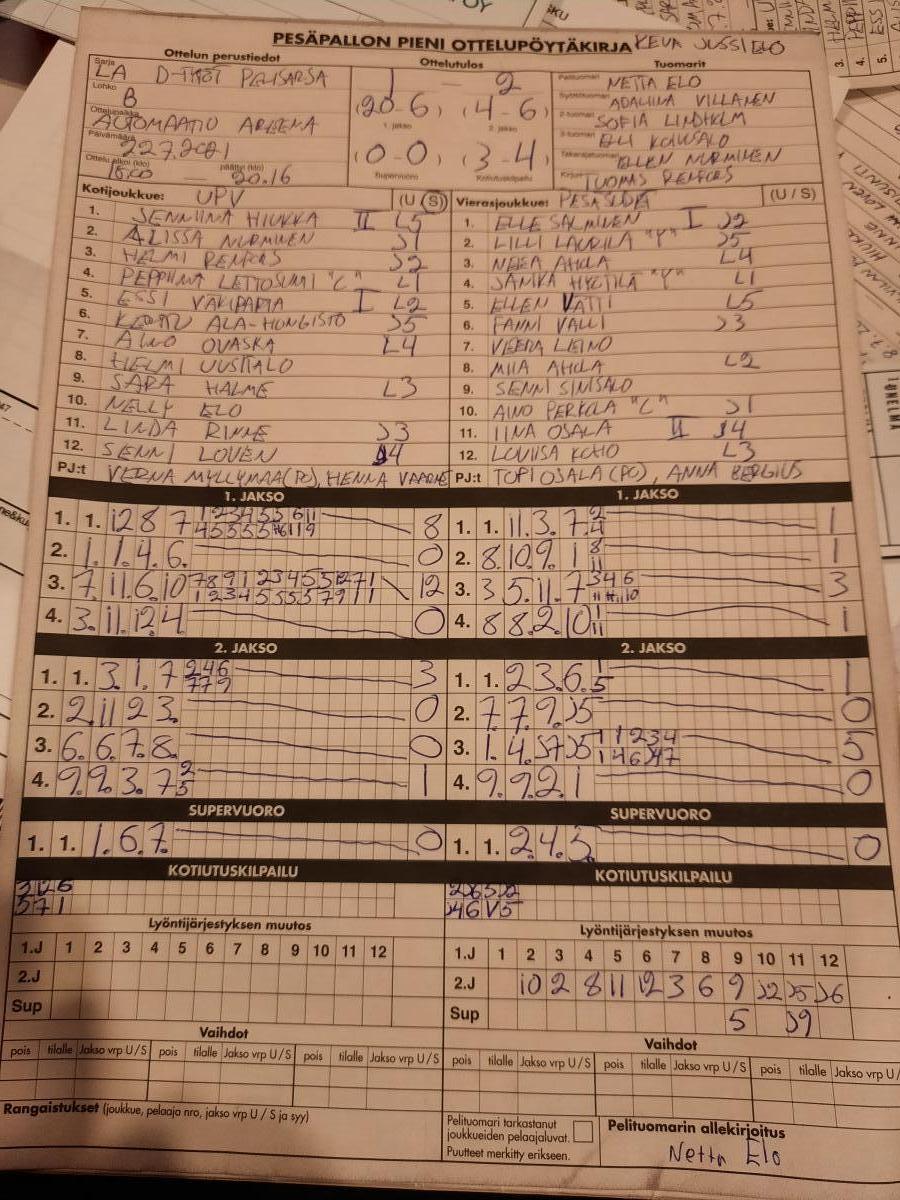 PESÄPALLON PIENI OTTELUPÖYTÄKIRJA KEVA JUSSI ELO
Ottelun perustiedot
Sarja LA D-TYTÖT PELISARSA
Lohko B
Ottelupaikka AUTOMAATIO AREENA
Päivämäärä 22.7.2021
Ottelu alkoi (klo) 18.00 — päättyi (klo) 20.16
Ottelutulos
1 — 2
(20-6) (4-6)
1. jakso 2. jakso
(0-0) (3-4)
Supervuoro Kotiutuskilpailu
Tuomarit
Pelituomari NETTA ELO
Syöttötuomari ADALIINA VILLANEN
2-tuomari SOFIA LINDHOLM
3-tuomari ELLI KOIVISALO
Takarajatuomari ELLEN NURMINEN
Kirjuri TUOMAS RENFORS
Kotijoukkue: UPV (U/S)
1. SENNIINA HIUKKA II L5
2. ALISSA NURMINEN J1
3. HELMI RENFORS J2
4. PEPPIINA LETTOSUMI "C" L1
5. ESSI VÄKIPARTA I L2
6. KERTTU ALA-HONGISTO J5
7. AINO OVASKA L4
8. HELMI UUSITALO
9. SARA HALME L3
10. NELLY ELO
11. LINDA RINNE J3
12. SENNI LOVEN J4
PJ:t VERNA MYLLYMAA (PO), HENNA VAARNE
Vierasjoukkue: PESÄSUDET (U/S)
1. ELLE SALMINEN I J2
2. LILLI LAURILA "P" J5
3. NEEA AHOLA L4
4. JANIKA HYÖTILÄ "P" L1
5. ELLEN VATTI L5
6. FANNI VALLI J3
7. VEERA LEINO
8. MIIA AHOLA L2
9. SENNI SINISALO
10. AINO PERKOLA "C" J1
11. IINA OSALA II J4
12. LOVIISA KOHO L3
PJ:t TOPI OSALA (PO), ANNA BERGIUS
1. JAKSO
1. 1. 12 8 7 8
2. 1. 1. 4. 6. 0
3. 7. 11. 6. 10 12
4. 3. 11. 12. 4 0
1. JAKSO
1. 1. 11. 3. 7 2 1
4
2. 8. 10. 9. 1 8 1
11
3. 3 5. 11. 7 3 4 6 3
4. 8 8. 2. 10 1 1
11
2. JAKSO
1. 1. 3. 1. 7 2 4 6 3
7 7 9
2. 2. 11 2 3. 0
3. 6. 6. 7. 8. 0
4. 9. 9. 3. 7 2 1
5
2. JAKSO
1. 1. 2 3. 6. 1 1
5
2. 7. 7. 9. J5 0
3. 1. 4. J7 J5 1 1 2 3 4 5
1 4 6 J4 7
4. 9. 9. 2. 1 0
SUPERVUORO
1. 1. 1. 6. 7. 0
SUPERVUORO
1. 1. 2. 4. 3. 0
KOTIUTUSKILPAILU
3 12 6
5 7 1
KOTIUTUSKILPAILU
Lyöntijärjestyksen muutos
1.J 1 2 3 4 5 6 7 8 9 10 11 12
2.J
Sup
Lyöntijärjestyksen muutos
1.J 1 2 3 4 5 6 7 8 9 10 11 12
2.J 10 2 8 11 12 3 6 9 J2 J5 J6
Sup 5 J9
Vaihdot
pois tilalle Jakso vrp U/S pois tilalle Jakso vrp U/S pois tilalle Jakso vrp U/S
Vaihdot
pois tilalle Jakso vrp U/S pois tilalle Jakso vrp U/S pois tilalle Jakso vrp U/
Rangaistukset (joukkue, pelaaja nro, jakso vrp U / S ja syy)
Pelituomari tarkastanut
joukkueiden pelaajaluvat.
Puutteet merkitty erikseen.
Pelituomarin allekirjoitus
Netta Elo